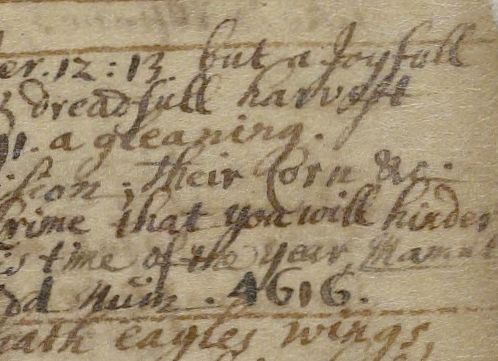 er. 12 : 13. but a Joyfull
dreadfull harvest
11. a gleaning.
their Corn &c.
rime that you will hinder
is time of the year
Num. 4616.
eath eagles wings,